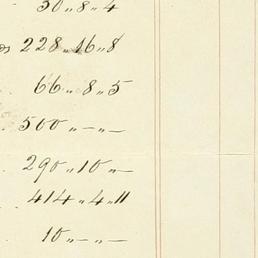 50 „ 8 „ 4
228 „ 16 „ 8
66 „ 8 „ 5
500 „ — „ —
290 „ 10 „ —
414 „ 4 „ 11
10 „ — „ —